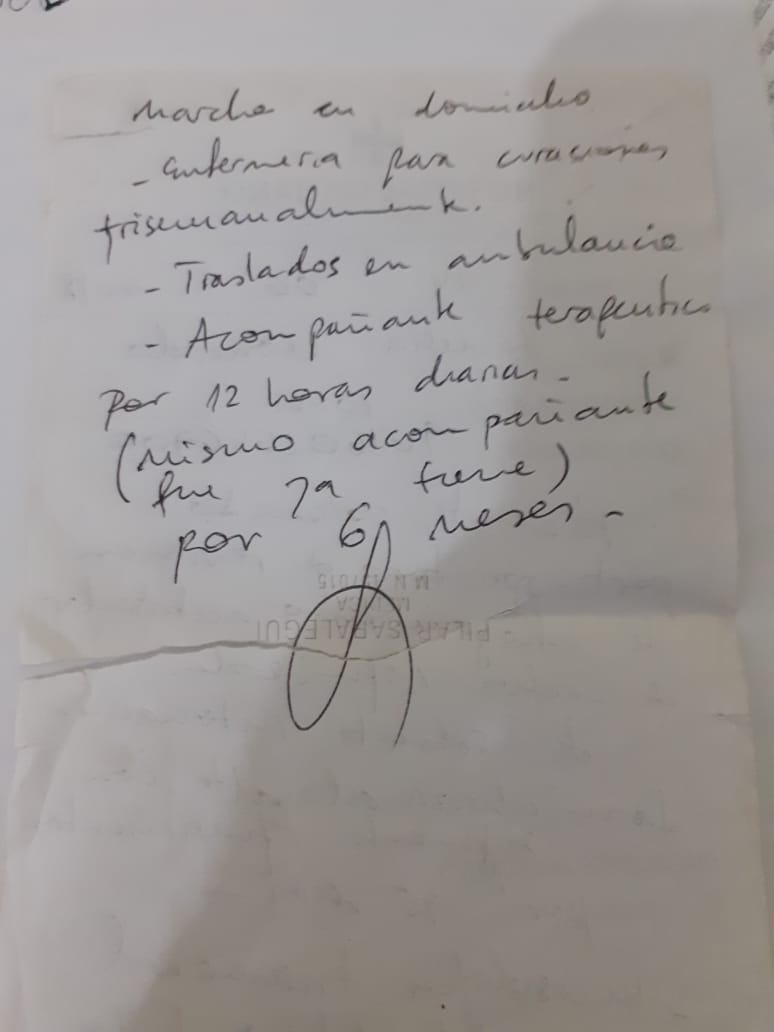 marcha en domicilio
- Enfermeria para curaciones
trisemanalmente.
- Traslados en ambulancia
- Acompañante terapeutico
por 12 horas diarias -
(mismo acompañante
que ya tiene)
por 6 meses -
M.N.
MEDICA
PILAR SARALEGUI